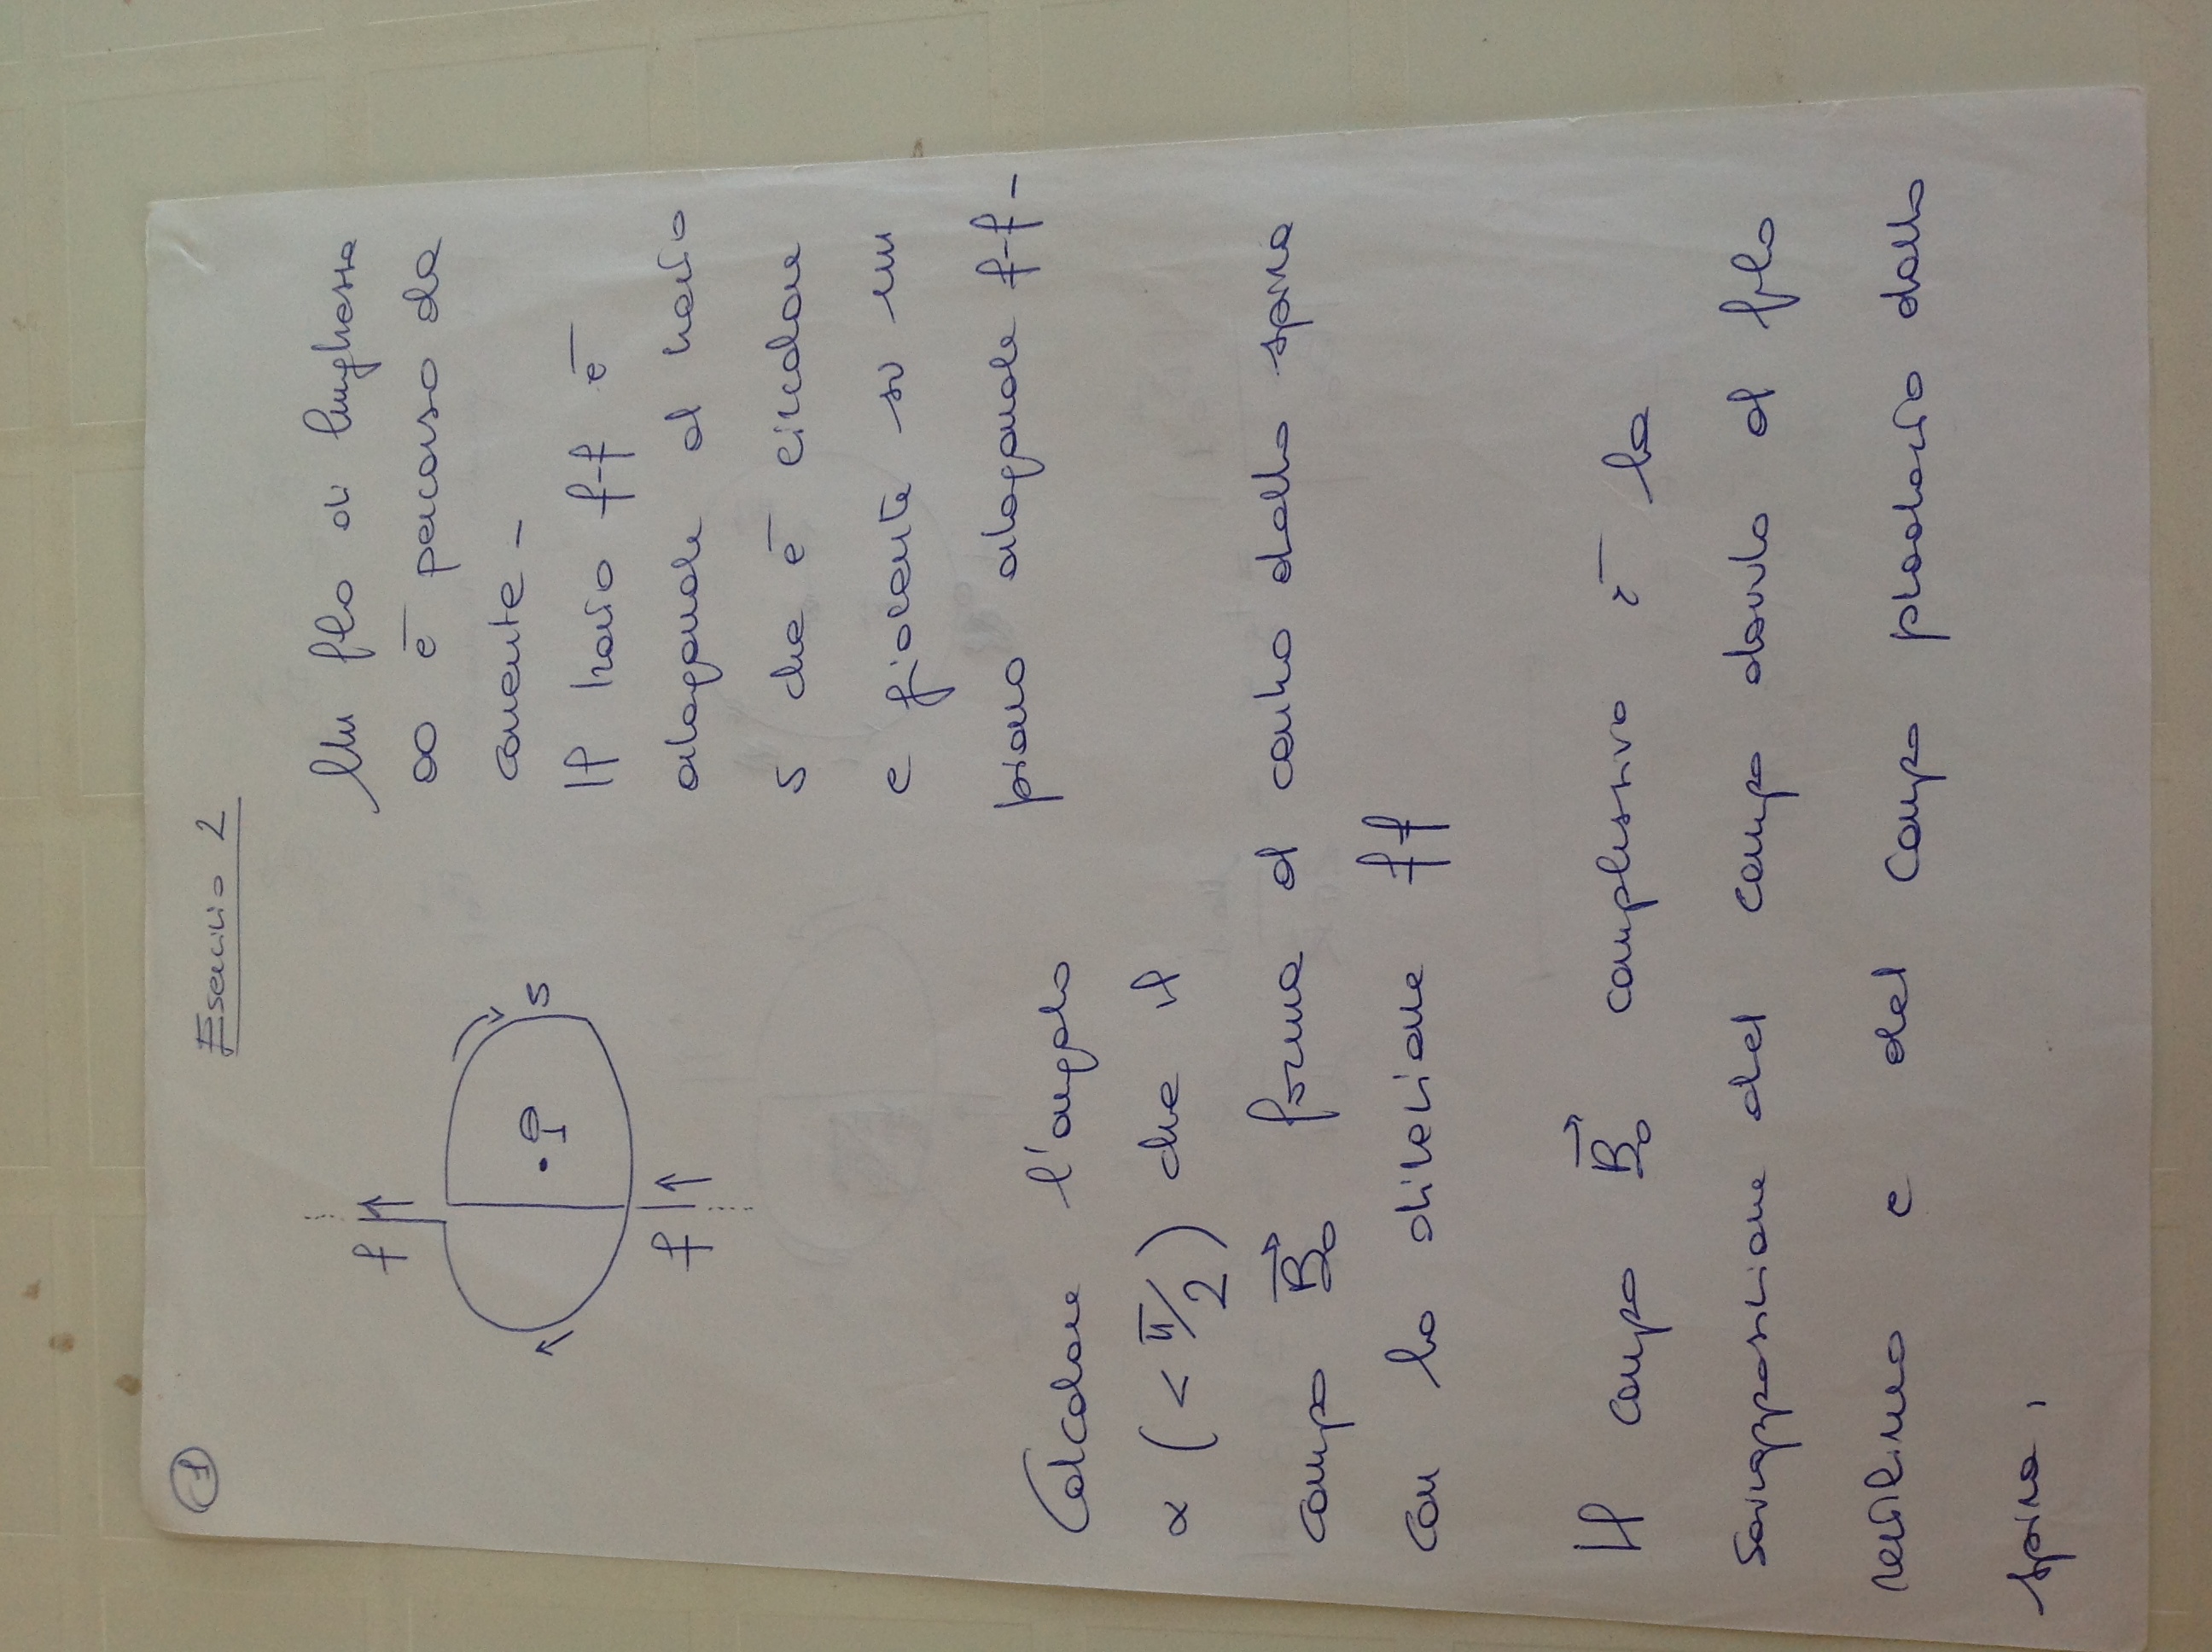 1
Esercizio 2
f
S
P
f
Un filo di lunghezza
∞ è percorso da
corrente -
Il tratto f-f è
ortogonale al tratto
s che è circolare
e giacente su un
piano ortogonale f-f -
Calcolare l'angolo
α ( < π/2 ) che il
campo B⃗₀ forma al centro della spira
con la direzione ff
Il campo B⃗₀ complessivo è la
sovrapposizione del campo dovuto al filo
rettilineo e del campo prodotto dalla
spira,